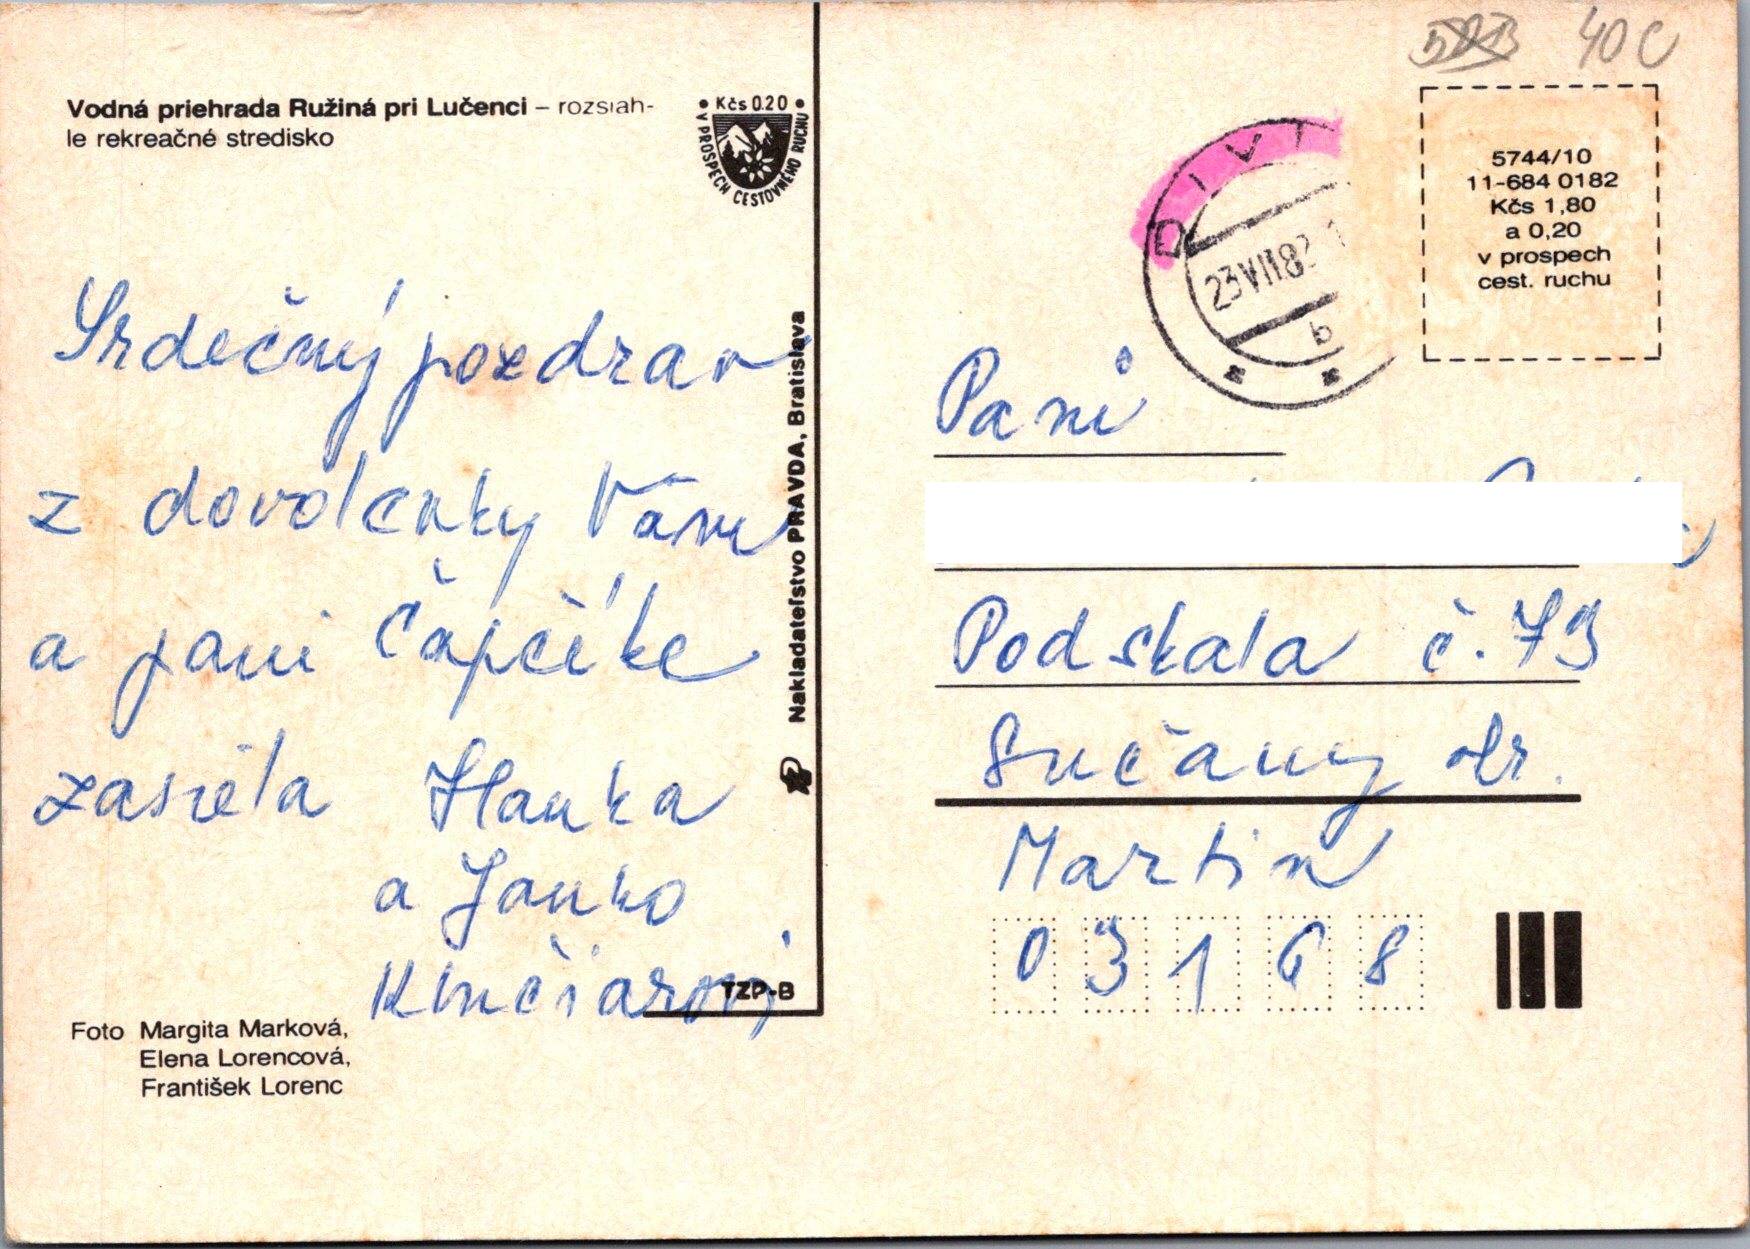 Vodná priehrada Ružiná pri Lučenci – rozsiah-
le rekreačné stredisko
• Kčs 0.20 •
V PROSPECH CESTOVNÉHO RUCHU
Srdečný pozdrav
z dovolenky Vám
a pani Čapčíke
zasiela Hanka
a Janko
Klinčiarovi
TZP-B
Foto Margita Marková,
Elena Lorencová,
František Lorenc
Nakladateľstvo PRAVDA, Bratislava
40 C
DIVÍ
23.VII.82
b
5744/10
11-684 0182
Kčs 1,80
a 0,20
v prospech
cest. ruchu
Pani
Podskala č. 79
Sučany okr.
Martin
03168